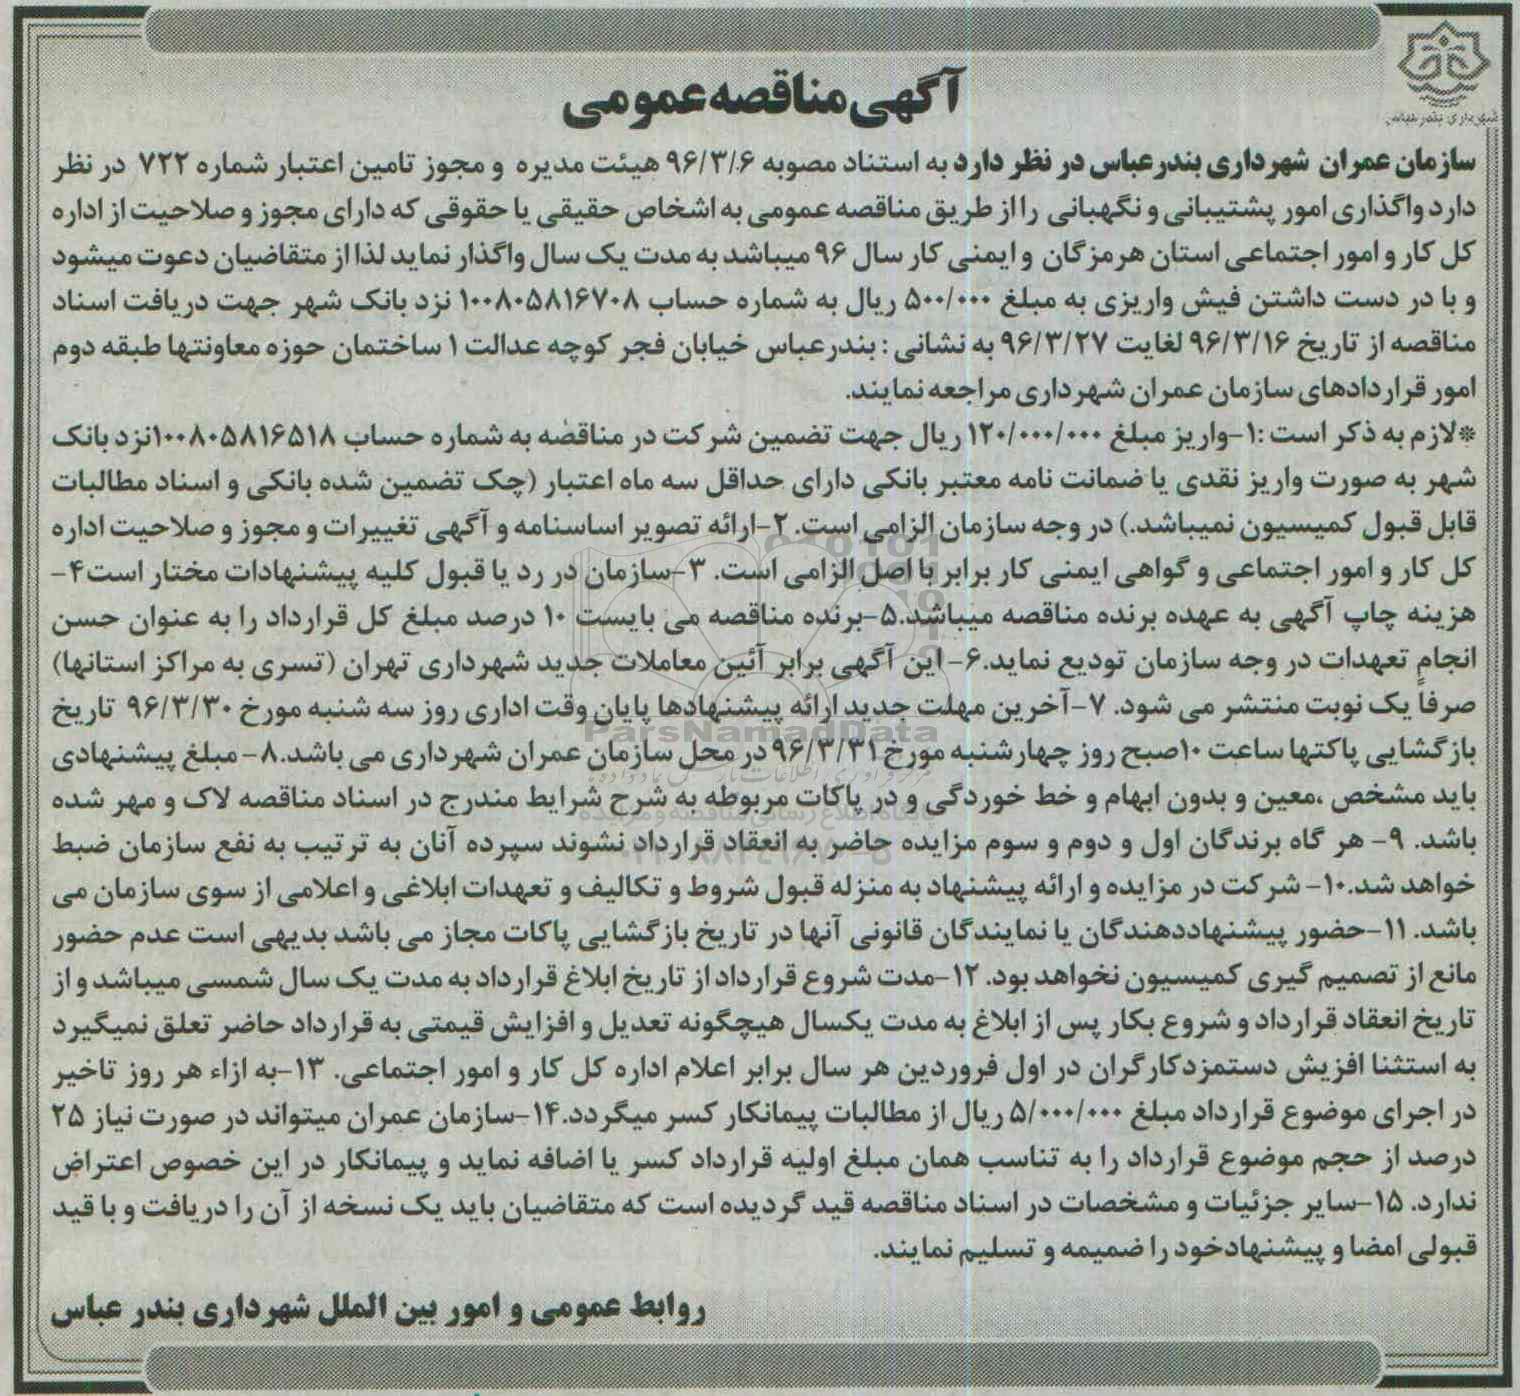 شهرداری بندرعباس
آگهی مناقصه عمومی
سازمان عمران شهرداری بندرعباس در نظر دارد به استناد مصوبه ۹۶/۳/۶ هیئت مدیره و مجوز تامین اعتبار شماره ۷۲۲ در نظر
دارد واگذاری امور پشتیبانی و نگهبانی را از طریق مناقصه عمومی به اشخاص حقیقی یا حقوقی که دارای مجوز و صلاحیت از اداره
کل کار و امور اجتماعی استان هرمزگان و ایمنی کار سال ۹۶ میباشد به مدت یک سال واگذار نماید لذا از متقاضیان دعوت میشود
و با در دست داشتن فیش واریزی به مبلغ ۵۰۰/۰۰۰ ریال به شماره حساب ۱۰۰۸۰۵۸۱۶۷۰۸ نزد بانک شهر جهت دریافت اسناد
مناقصه از تاریخ ۹۶/۳/۱۶ لغایت ۹۶/۳/۲۷ به نشانی : بندرعباس خیابان فجر کوچه عدالت ۱ ساختمان حوزه معاونتها طبقه دوم
امور قراردادهای سازمان عمران شهرداری مراجعه نمایند.
*لازم به ذکر است :۱-واریز مبلغ ۱۲۰/۰۰۰/۰۰۰ ریال جهت تضمین شرکت در مناقصه به شماره حساب ۱۰۰۸۰۵۸۱۶۵۱۸نزد بانک
شهر به صورت واریز نقدی یا ضمانت نامه معتبر بانکی دارای حداقل سه ماه اعتبار (چک تضمین شده بانکی و اسناد مطالبات
قابل قبول کمیسیون نمیباشد.) در وجه سازمان الزامی است. ۲-ارائه تصویر اساسنامه و آگهی تغییرات و مجوز و صلاحیت اداره
کل کار و امور اجتماعی و گواهی ایمنی کار برابر با اصل الزامی است. ۳-سازمان در رد یا قبول کلیه پیشنهادات مختار است۴-
هزینه چاپ آگهی به عهده برنده مناقصه میباشد.۵-برنده مناقصه می بایست ۱۰ درصد مبلغ کل قرارداد را به عنوان حسن
انجام تعهدات در وجه سازمان تودیع نماید.۶- این آگهی برابر آئین معاملات جدید شهرداری تهران (تسری به مراکز استانها)
صرفاً یک نوبت منتشر می شود. ۷-آخرین مهلت جدید ارائه پیشنهادها پایان وقت اداری روز سه شنبه مورخ ۹۶/۳/۳۰ تاریخ
بازگشایی پاکتها ساعت ۱۰صبح روز چهارشنبه مورخ ۹۶/۳/۳۱ در محل سازمان عمران شهرداری می باشد.۸- مبلغ پیشنهادی
باید مشخص ،معین و بدون ابهام و خط خوردگی و در پاکات مربوطه به شرح شرایط مندرج در اسناد مناقصه لاک و مهر شده
باشد. ۹- هر گاه برندگان اول و دوم و سوم مزایده حاضر به انعقاد قرارداد نشوند سپرده آنان به ترتیب به نفع سازمان ضبط
خواهد شد.۱۰- شرکت در مزایده و ارائه پیشنهاد به منزله قبول شروط و تکالیف و تعهدات ابلاغی و اعلامی از سوی سازمان می
باشد. ۱۱-حضور پیشنهاددهندگان یا نمایندگان قانونی آنها در تاریخ بازگشایی پاکات مجاز می باشد بدیهی است عدم حضور
مانع از تصمیم گیری کمیسیون نخواهد بود. ۱۲-مدت شروع قرارداد از تاریخ ابلاغ قرارداد به مدت یک سال شمسی میباشد و از
تاریخ انعقاد قرارداد و شروع بکار پس از ابلاغ به مدت یکسال هیچگونه تعدیل و افزایش قیمتی به قرارداد حاضر تعلق نمیگیرد
به استثنا افزیش دستمزدکارگران در اول فروردین هر سال برابر اعلام اداره کل کار و امور اجتماعی. ۱۳-به ازاء هر روز تاخیر
در اجرای موضوع قرارداد مبلغ ۵/۰۰۰/۰۰۰ ریال از مطالبات پیمانکار کسر میگردد.۱۴-سازمان عمران میتواند در صورت نیاز ۲۵
درصد از حجم موضوع قرارداد را به تناسب همان مبلغ اولیه قرارداد کسر یا اضافه نماید و پیمانکار در این خصوص اعتراض
ندارد. ۱۵-سایر جزئیات و مشخصات در اسناد مناقصه قید گردیده است که متقاضیان باید یک نسخه از آن را دریافت و با قید
قبولی امضا و پیشنهادخود را ضمیمه و تسلیم نمایند.
روابط عمومی و امور بین الملل شهرداری بندر عباس
ParsNamadData